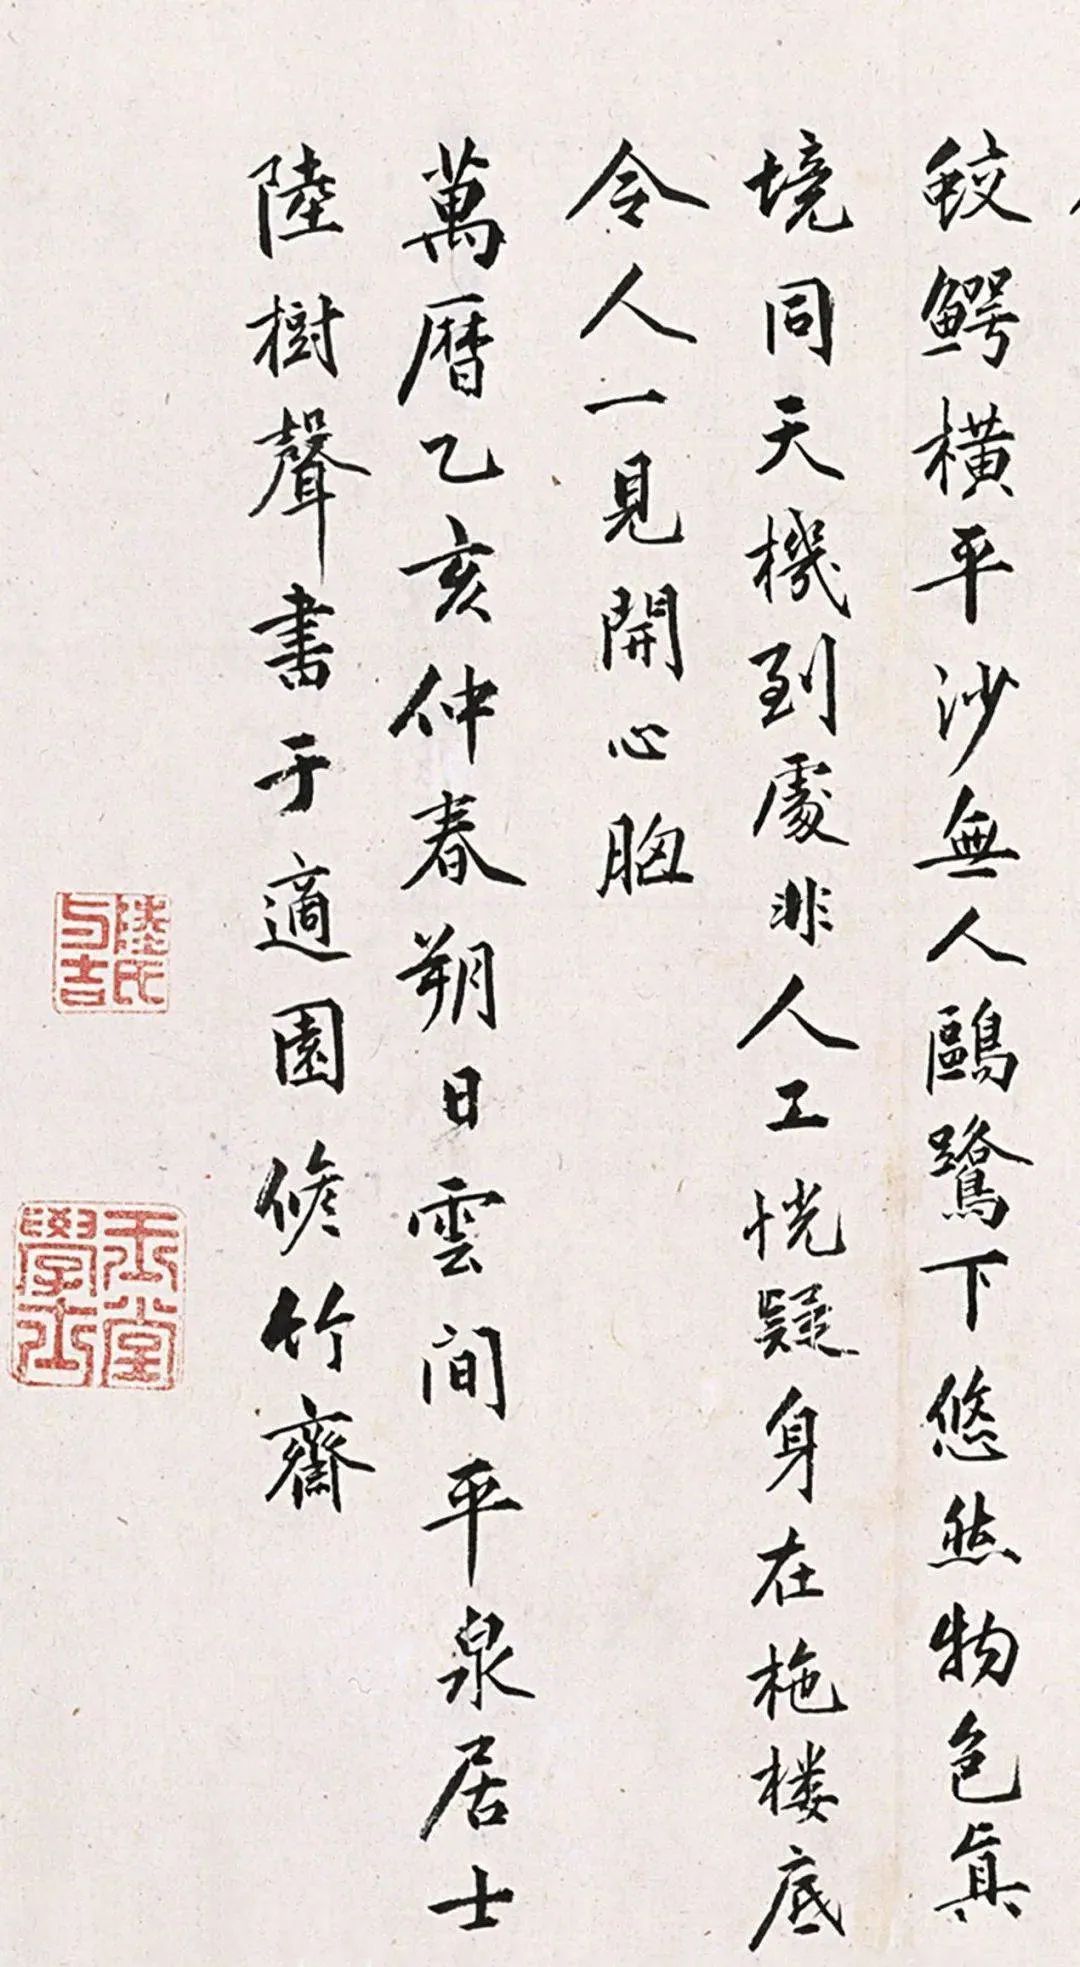 鮫鰐橫平沙無人鷗鷺下悠然物色真
境同天機到處非人工恍疑身在柂楼底
令人一見開心胸
萬曆乙亥仲春朔日雲間平泉居士
陸樹聲書于適園脩竹齋
陸氏与吉
玉堂學士